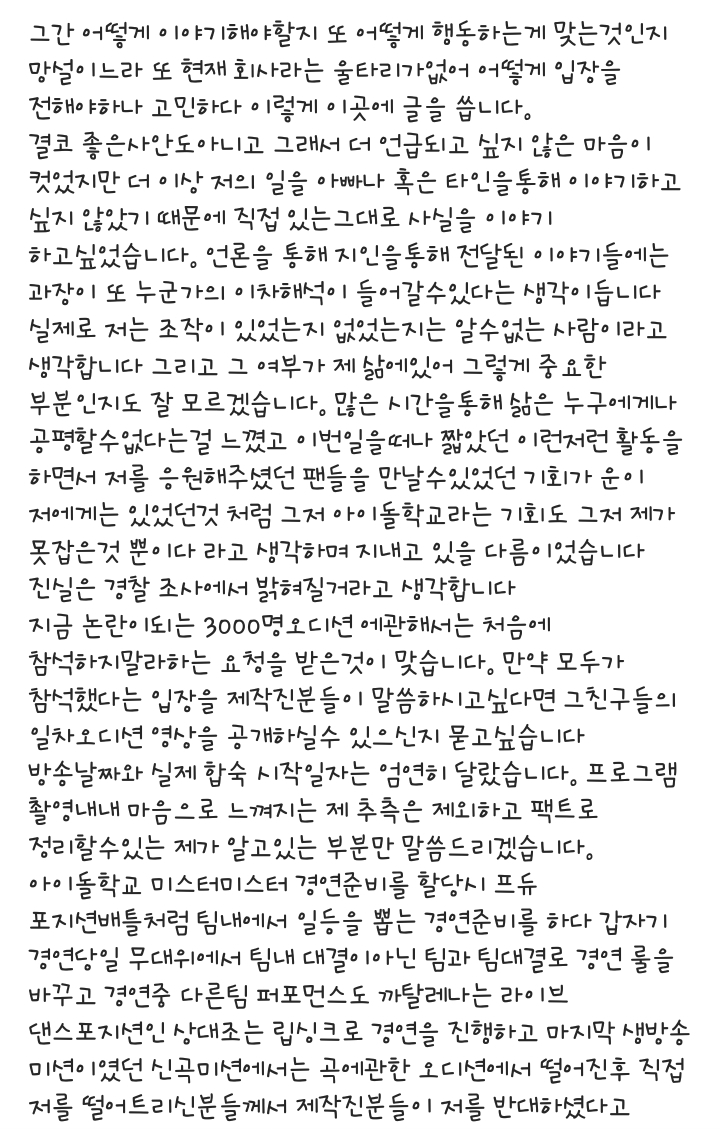 그간 어떻게 이야기해야할지 또 어떻게 행동하는게 맞는것인지
망설이느라 또 현재 회사라는 울타리가없어 어떻게 입장을
전해야하나 고민하다 이렇게 이곳에 글을 씁니다.
결코 좋은사안도아니고 그래서 더 언급되고 싶지 않은 마음이
컷었지만 더 이상 저의 일을 아빠나 혹은 타인을통해 이야기하고
싶지 않았기 때문에 직접 있는그대로 사실을 이야기
하고싶었습니다. 언론을 통해 지인을통해 전달된 이야기들에는
과장이 또 누군가의 이차해석이 들어갈수있다는 생각이듭니다
실제로 저는 조작이 있었는지 없었는지는 알수없는 사람이라고
생각합니다 그리고 그 여부가 제 삶에있어 그렇게 중요한
부분인지도 잘 모르겠습니다. 많은 시간을통해 삶은 누구에게나
공평할수없다는걸 느꼈고 이번일을떠나 짧았던 이런저런 활동을
하면서 저를 응원해주셨던 팬들을 만날수있었던 기회가 운이
저에게는 있었던것 처럼 그저 아이돌학교라는 기회도 그저 제가
못잡은것 뿐이다 라고 생각하며 지내고 있을 다름이었습니다
진실은 경찰 조사에서 밝혀질거라고 생각합니다
지금 논란이되는 3000명오디션 에관해서는 처음에
참석하지말라하는 요청을 받은것이 맞습니다. 만약 모두가
참석했다는 입장을 제작진분들이 말씀하시고싶다면 그친구들의
일차오디션 영상을 공개하실수 있으신지 묻고싶습니다
방송날짜와 실제 합숙 시작일자는 엄연히 달랐습니다. 프로그램
촬영내내 마음으로 느껴지는 제 추측은 제외하고 팩트로
정리할수있는 제가 알고있는 부분만 말씀드리겠습니다.
아이돌학교 미스터미스터 경연준비를 할당시 프듀
포지션배틀처럼 팀내에서 일등을 뽑는 경연준비를 하다 갑자기
경연당일 무대위에서 팀내 대결이아닌 팀과 팀대결로 경연 룰을
바꾸고 경연중 다른팀 퍼포먼스도 까탈레나는 라이브
댄스포지션인 상대조는 립싱크로 경연을 진행하고 마지막 생방송
미션이였던 신곡미션에서는 곡에관한 오디션에서 떨어진후 직접
저를 떨어트리신분들께서 제작진분들이 저를 반대하셨다고